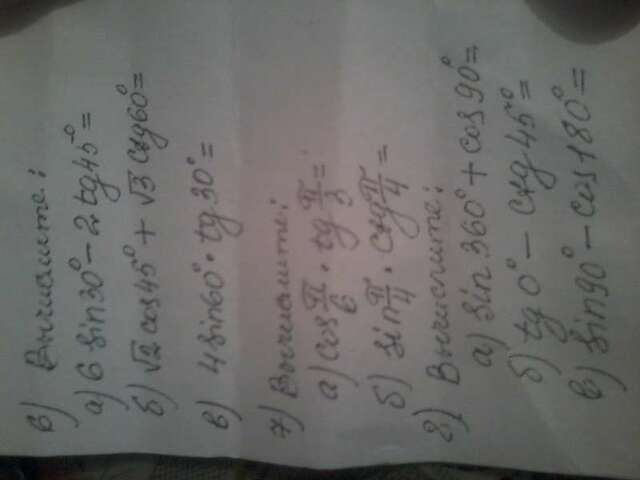 6) Вычислите:
а) 6 sin30° - 2tg45° =
б) √2 cos45° + √3 ctg60° =
в) 4sin60° · tg30° =
7) Вычислите:
а) cos π/6 · tg π/3 =
б) sin π/4 · ctg π/4 =
8) Вычислите:
а) sin 360° + cos 90° =
б) tg 0° - ctg 45° =
в) sin90° - cos180° =